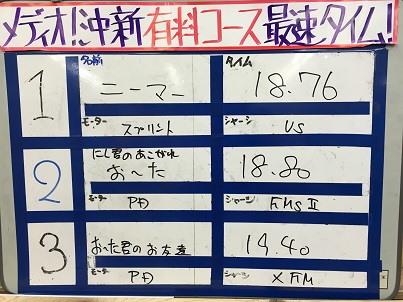 メディオ!!沖新有料コース最速タイム!
名前 タイム
1 ニーマー 18.76
モーター スプリント シャーシ VS
にし君のあこがれ
2 お〜た 18.80
モーター PD シャーシ FMSⅡ
3 おーた君のお友達 19.40
モーター PD シャーシ XFM